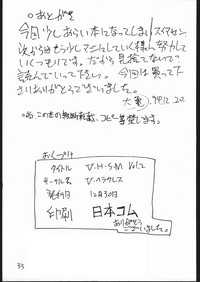 ○あとがき
今回少しあらい本になってしまいスイマセン
次からはもう少しマシにしていく様に努力して
いくつもりです。だから見捨てないで
読んでいって下さい。今回は買って下
さいありがとうございました。
'94.12.20
○尚、この本の無断転載、コピーを禁じます。
おくづけ
タイトル V・H・S・M Vol.2
サークル名 V・ヘラクレス
発行日 12月30日
印刷 日本コム
ありがとう
ございました。
35